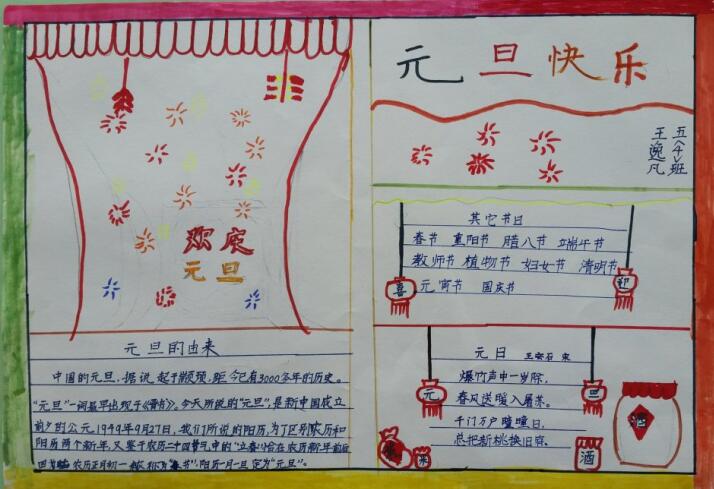 元旦快乐
五〈4〉班
王逸凡
欢庆
元旦
元旦的由来
中国的元旦，据说起于颛顼，距今已有3000多年的历史。
"元旦"一词最早出现于《晋书》。今天所说的"元旦"，是新中国成立
前夕的公元1949年9月27日，我们所说的阳历，为了区别农历和
阳历两个新年，又鉴于农历二十四节气中的"立春"恰在农历新年前后
农历正月初一 称为"春节"，阳历一月一日定为"元旦"。
其它节日
春节 重阳节 腊八节 端午节
教师节 植物节 妇女节 清明节
元宵节 国庆节
喜
迎
元日 王安石 宋
爆竹声中一岁除，
春风送暖入屠苏。
千门万户曈曈日，
总把新桃换旧符。
元
旦
米
酒
酒